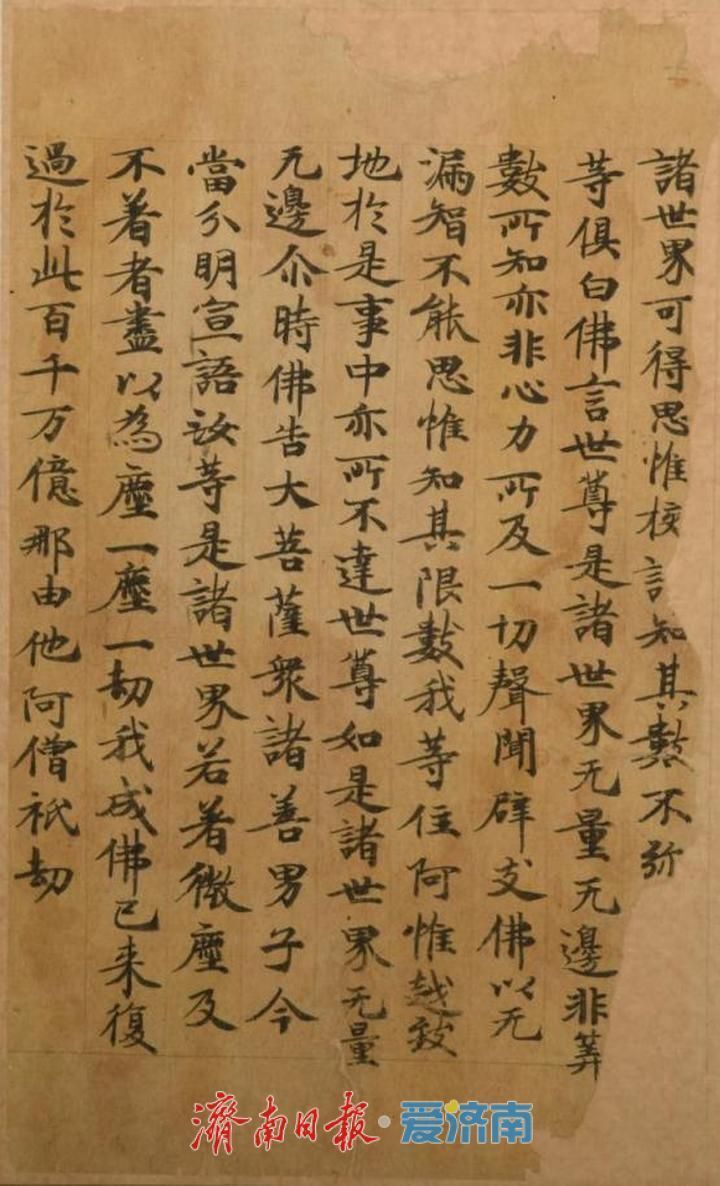 諸世界可得思惟校計知其數不弥
等俱白佛言世尊是諸世界无量无邊非筭
數所知亦非心力所及一切聲聞辟支佛以无
漏智不能思惟知其限數我等住阿惟越致
地於是事中亦所不達世尊如是諸世界无量
无邊尒時佛告大菩薩衆諸善男子今
當分明宣語汝等是諸世界若著微塵及
不著者盡以為塵一塵一劫我成佛已来復
過於此百千万億那由他阿僧祇劫
濟南日报·爱济南